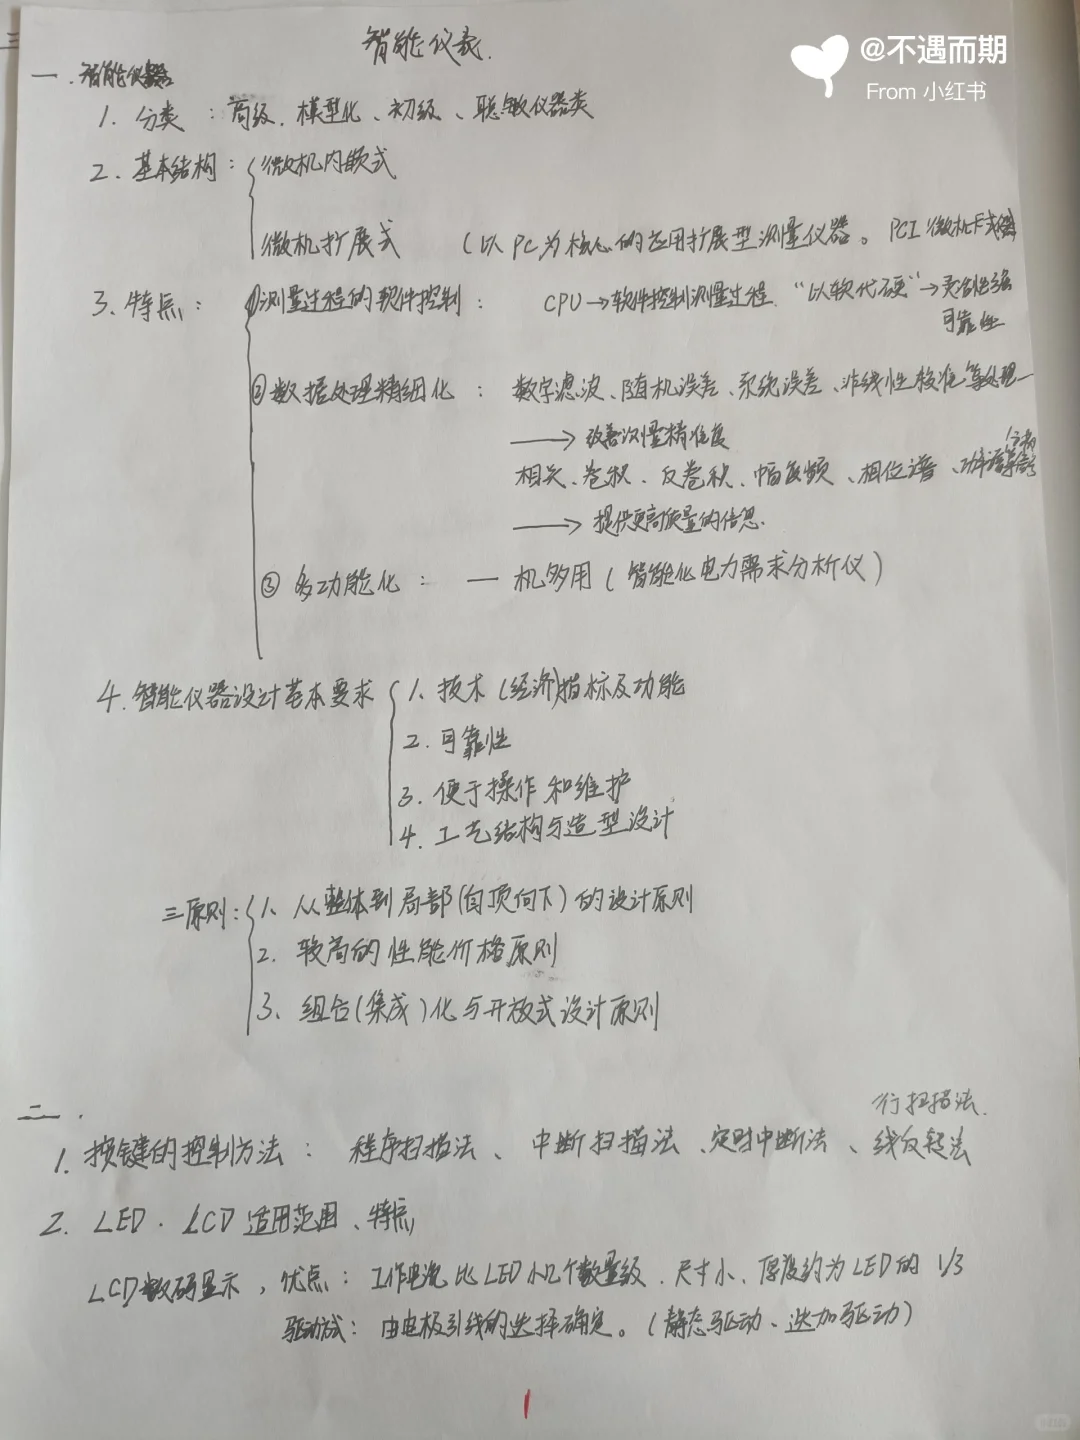 智能仪表.
@不遇而期
From 小红书
一.智能仪器
1. 分类：高级、模型化、初级、聪敏仪器类
2. 基本结构：微机内嵌式
微机扩展式 （以PC为核心的应用扩展型测量仪器。PCI 微机卡式
3、特点：①测量过程的软件控制： CPU→软件控制测量过程. “以软代硬”→灵活性强
可靠性
②数据处理精细化： 数字滤波、随机误差、系统误差、非线性校准等处理
→ 改善测量精准度
相关、卷积、反卷积、幅度频、相位谱、功率谱等信号分析
→ 提供更高质量的信息.
③ 多功能化： 一机多用（智能化电力需求分析仪）
4. 智能仪器设计基本要求 1、技术（经济）指标及功能
2. 可靠性
3. 便于操作和维护
4. 工艺结构与造型设计
三原则： 1、从整体到局部（自顶向下）的设计原则
2. 较高的性能价格原则
3、组合（集成）化与开放式设计原则
二.
行扫描法.
1. 按键的控制方法： 程序扫描法、中断扫描法、定时中断法、线反转法
2. LED . LCD 适用范围、特点
LCD数码显示，优点：工作电流比LED小几个数量级. 尺寸小、厚度约为LED的 1/3
驱动方式：由电极引线的选择确定。（静态驱动、迭加驱动）
1